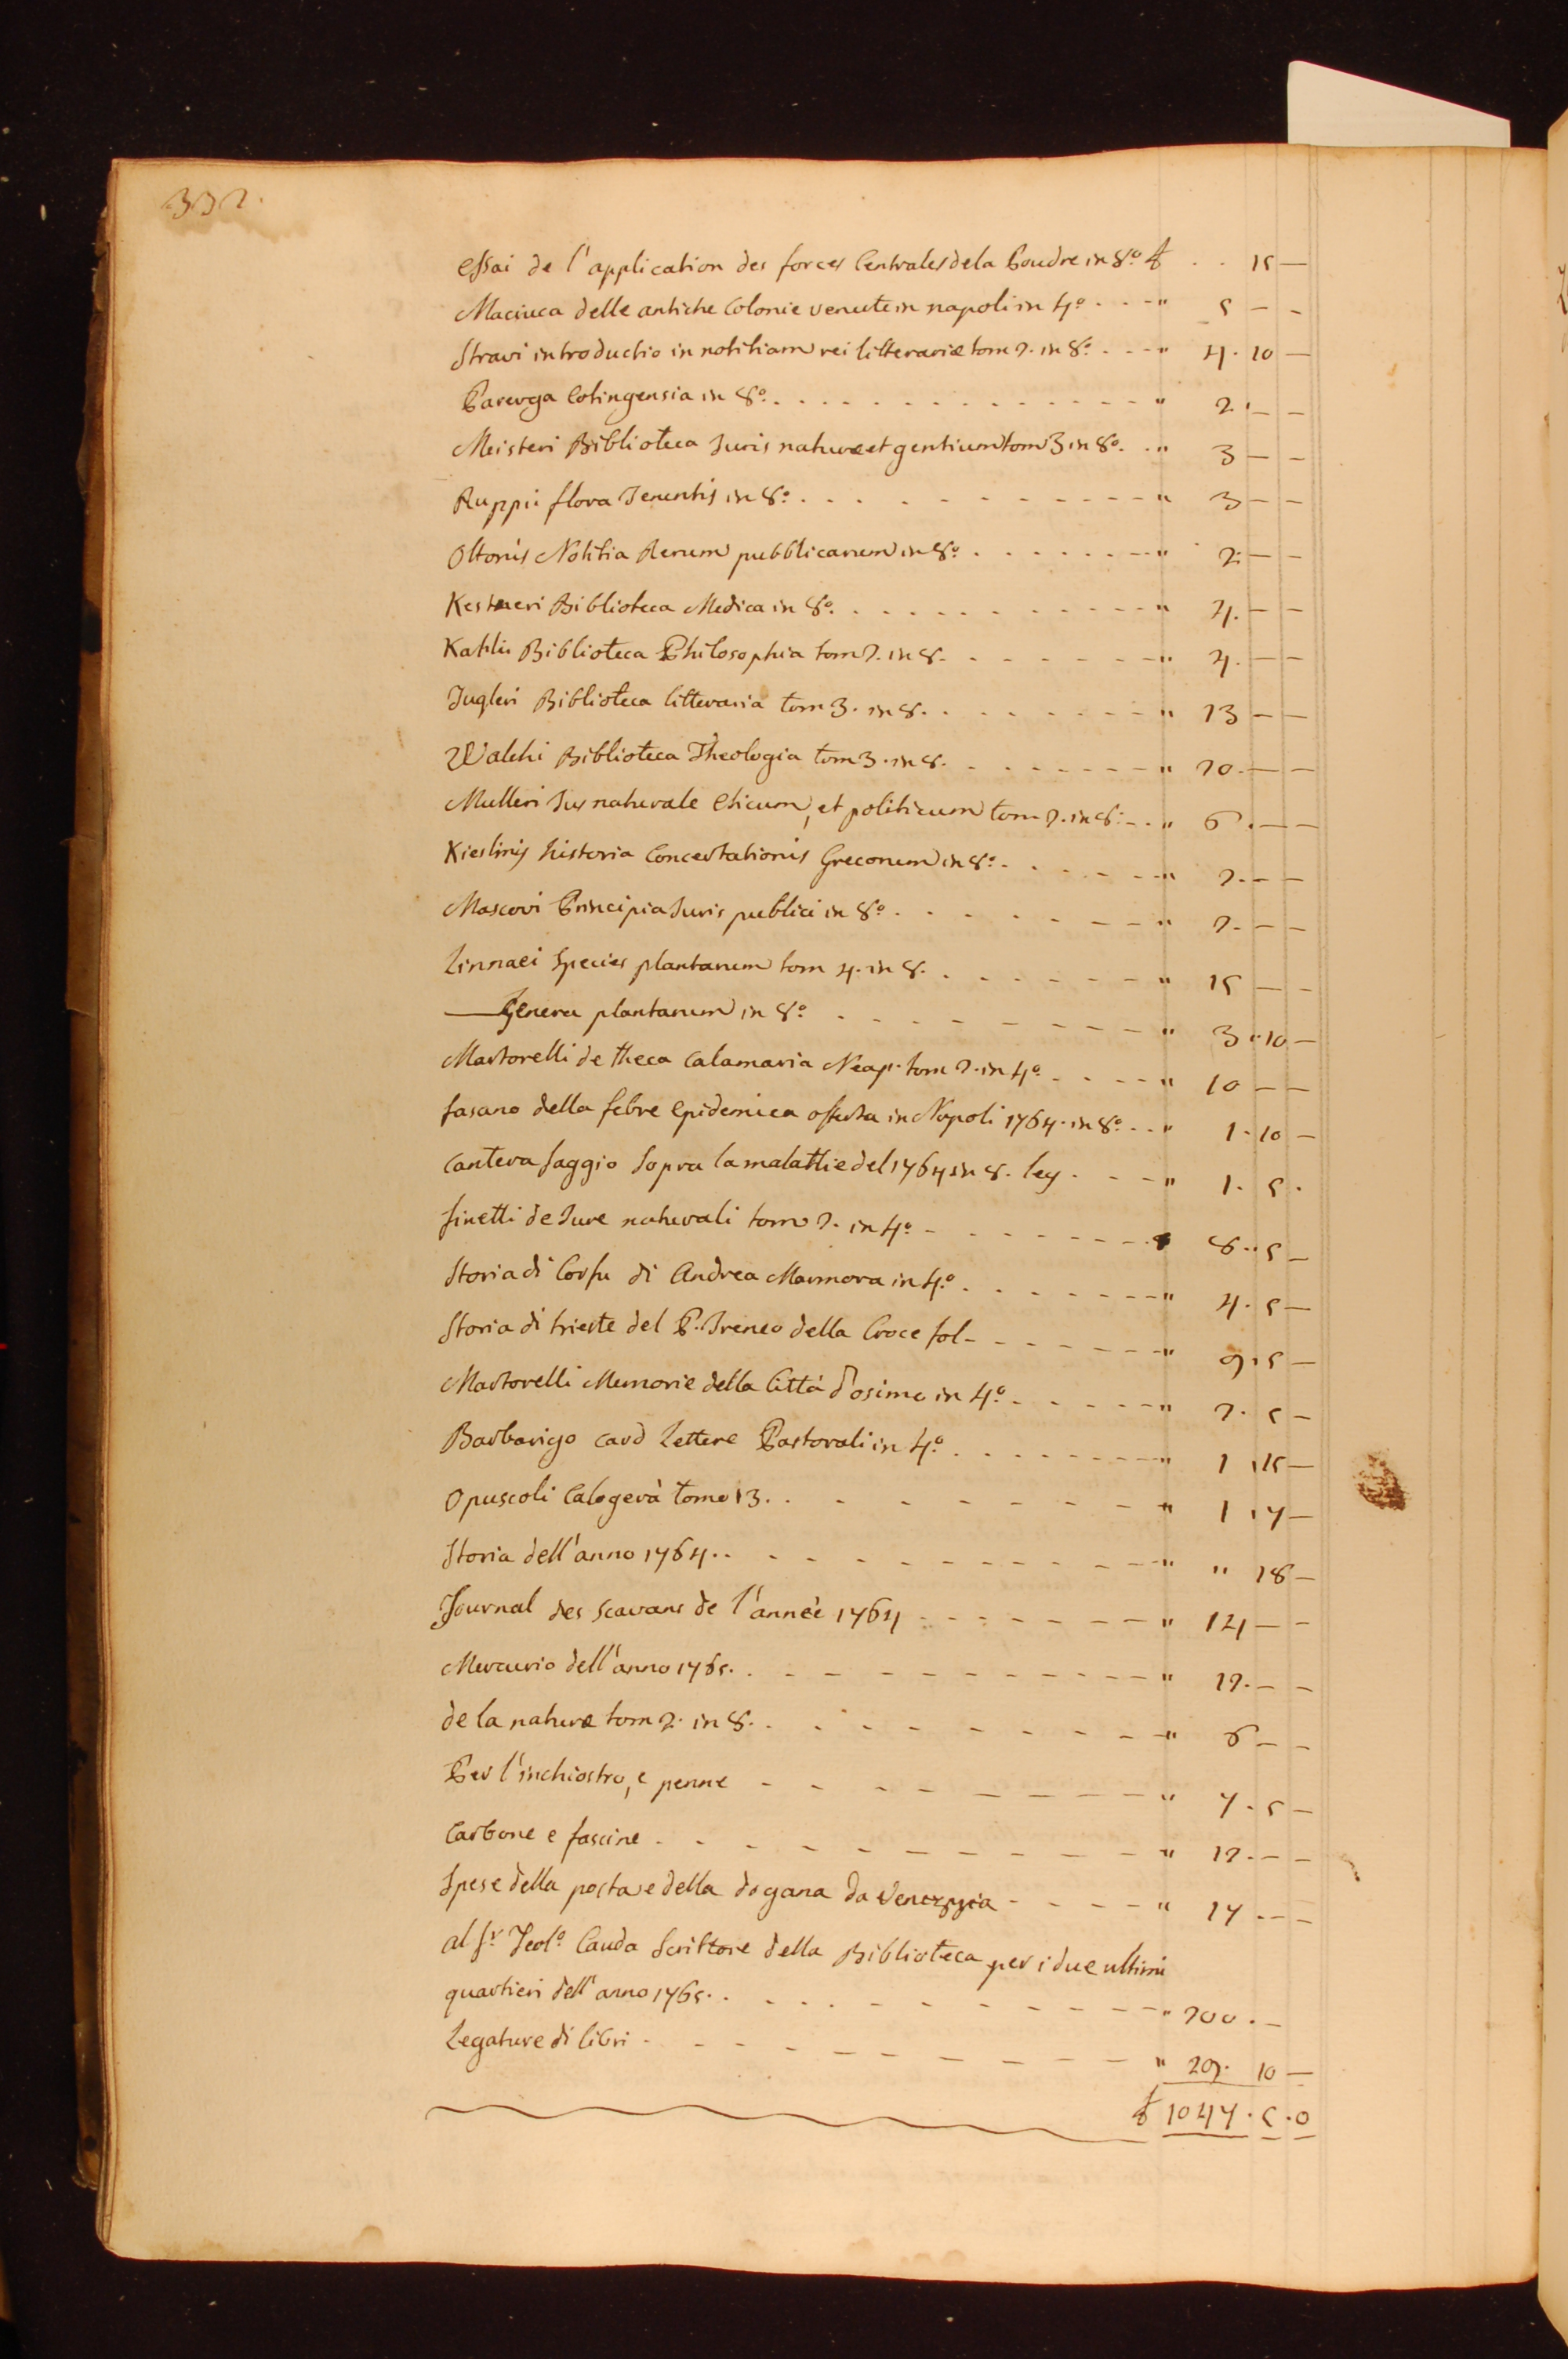 332.
Essai de l'application des forces Centrales de la Poudre in 8º ₶ . . 15 —
Maciuca delle antiche Colonie venute in napoli in 4º . . . " 5 — -
Struvi introductio in notitiam rei litterariæ tom 2. in 8º . . . " 4. 10 —
Parerga Cotingensia in 8º . . . " 2. — —
Meisteri Biblioteca Juris naturæ et gentium tom 3 in 8º . . " 3 — -
Ruppii flora Jenensis in 8º . . . " 3 — —
Ottonis Notitia Rerum pubblicarum in 8º . . . " 2. — -
Kestneri Biblioteca Medica in 8º . . . " 4. — —
Kahlii Biblioteca Philosophia tom 2. in 8. . . . " 4. — —
Jugleri Biblioteca litteraria tom 3. in 8. . . . " 13 — —
Walchi Biblioteca Theologia tom 3. in 8. . . . " 20. — —
Mulleri Jus naturale Eticum, et politicum tom 2. in 8. . . " 6. — —
Kieslinis historia Concertationis Grecorum in 8º . . . " 2. — —
Mascovi Principia Juris publici in 8º . . . " 2. — —
Linnaei Species plantarum tom 4. in 8. . . . " 15 — -
— Genera plantarum in 8º . . . " 3 " 10 —
Martorelli de theca Calamaria Neap. tom 2. in 4º . . . " 10 — —
fasano della febre Epidemica offerta in Napoli 1764. in 8º . . " 1. 10 —
Cantera saggio sopra la malattie del 1764 in 8. leg . . . " 1. 5 .
finetti de Jure naturali tomo 2. in 4º . . . " 8 .. 5 —
Storia di Corfu di Andrea Marmora in 4º . . . " 4. 5 —
Storia di trieste del P. Ireneo della Croce fol . . . " 9. 5 —
Martorelli Memorie della Città d'osimo in 4º . . . " 2. 5 —
Barbarigo card Lettere Pastorali in 4º . . . " 1. 15 —
Opuscoli Calogerà tomo 13. . . . " 1. 7 —
Storia dell'anno 1764. . . . " " 18 —
Journal des Scavans de l'année 1764 . . . " 14 — —
Mercurio dell'anno 1765. . . . " 12. — —
de la nature tom 2. in 8. . . . " 6 — —
Per l'inchiostro, e penne . . . " 7. 5 —
Carbone e fascine . . . " 12. — —
Spese della posta e della dogana da Venezzia . . . " 17. — —
al Sr. Teolº Cauda Scrittore della Biblioteca per i due ultimi
quartieri dell'anno 1765. . . . " 200. —
Legature di libri . . . " 29. 10 —
₶ 1047. 5. 0